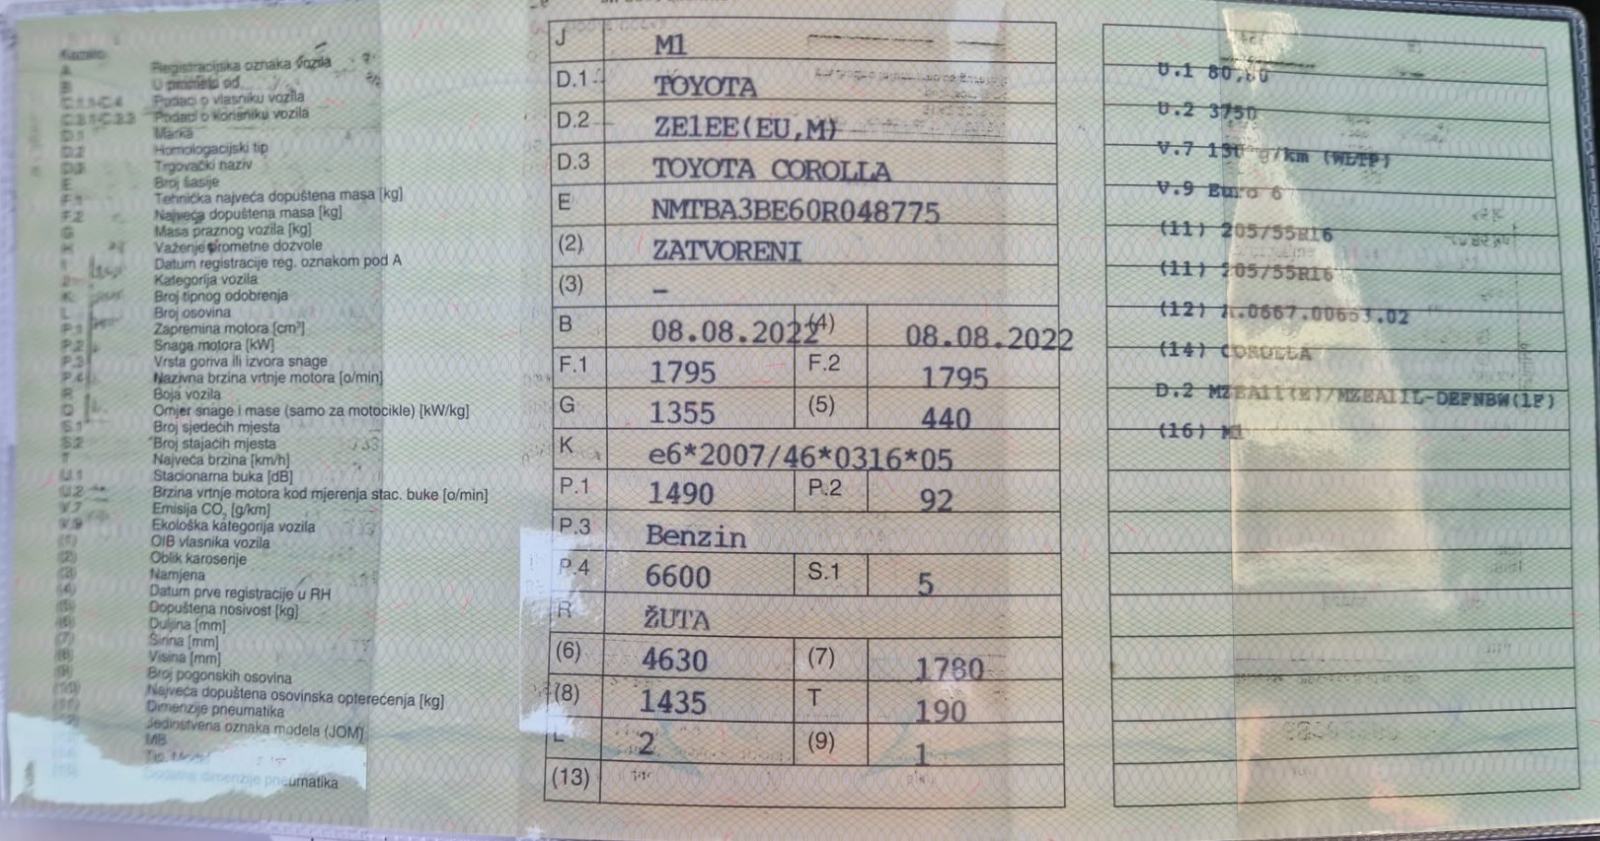 Registracijska oznaka vozila
U prometu od
Podaci o vlasniku vozila
Podaci o korisniku vozila
D.1 Marka
D.2 Homologacijski tip
D.3 Trgovački naziv
E Broj šasije
F.1 Tehnička najveća dopuštena masa [kg]
F.2 Najveća dopuštena masa [kg]
G Masa praznog vozila [kg]
H Važenje prometne dozvole
I Datum registracije reg. oznakom pod A
Kategorija vozila
K Broj tipnog odobrenja
L Broj osovina
P.1 Zapremina motora [cm³]
P.2 Snaga motora [kW]
P.3 Vrsta goriva ili izvora snage
P.4 Nazivna brzina vrtnje motora [o/min]
R Boja vozila
Q Omjer snage i mase (samo za motocikle) [kW/kg]
S.1 Broj sjedećih mjesta
S.2 Broj stajaćih mjesta
T Najveća brzina [km/h]
U.1 Stacionarna buka [dB]
U.2 Brzina vrtnje motora kod mjerenja stac. buke [o/min]
V.7 Emisija CO₂ [g/km]
V.9 Ekološka kategorija vozila
(1) OIB vlasnika vozila
(2) Oblik karoserije
(3) Namjena
(4) Datum prve registracije u RH
(5) Dopuštena nosivost [kg]
(6) Duljina [mm]
(7) Širina [mm]
(8) Visina [mm]
(9) Broj pogonskih osovina
(10) Najveća dopuštena osovinska opterećenja [kg]
(11) Dimenzije pneumatika
Jedinstvena oznaka modela (JOM)
MB
dimenzije pneumatika
J M1
D.1 TOYOTA
D.2 ZE1EE(EU,M)
D.3 TOYOTA COROLLA
E NMTBA3BE60R048775
(2) ZATVORENI
(3) –
B 08.08.2022 (4) 08.08.2022
F.1 1795 F.2 1795
G 1355 (5) 440
K e6*2007/46*0316*05
P.1 1490 P.2 92
P.3 Benzin
P.4 6600 S.1 5
R ŽUTA
(6) 4630 (7) 1780
(8) 1435 T 190
L 2 (9) 1
(13)
U.1
U.2 3750
V.7 g/km (WLTP)
V.9 Euro 6
(11) 205/55R16
(11) 205/55R16
(12)
(14) COROLLA
D.2
(16) M1